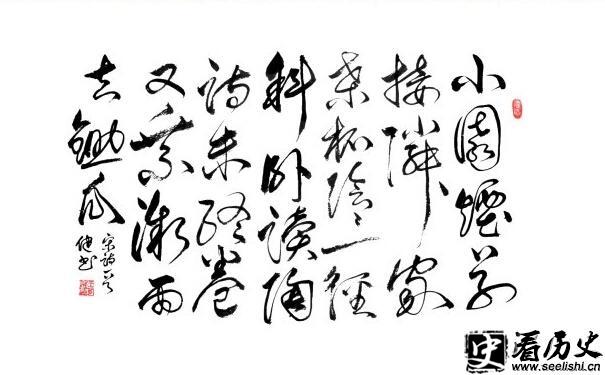 小園煙草
接隣家
桑柘陰々一徑
斜卧讀陶
詩未終卷
又乘微雨
去鋤瓜
宋詩一首
健书
史 看历史
www.seelishi.cn